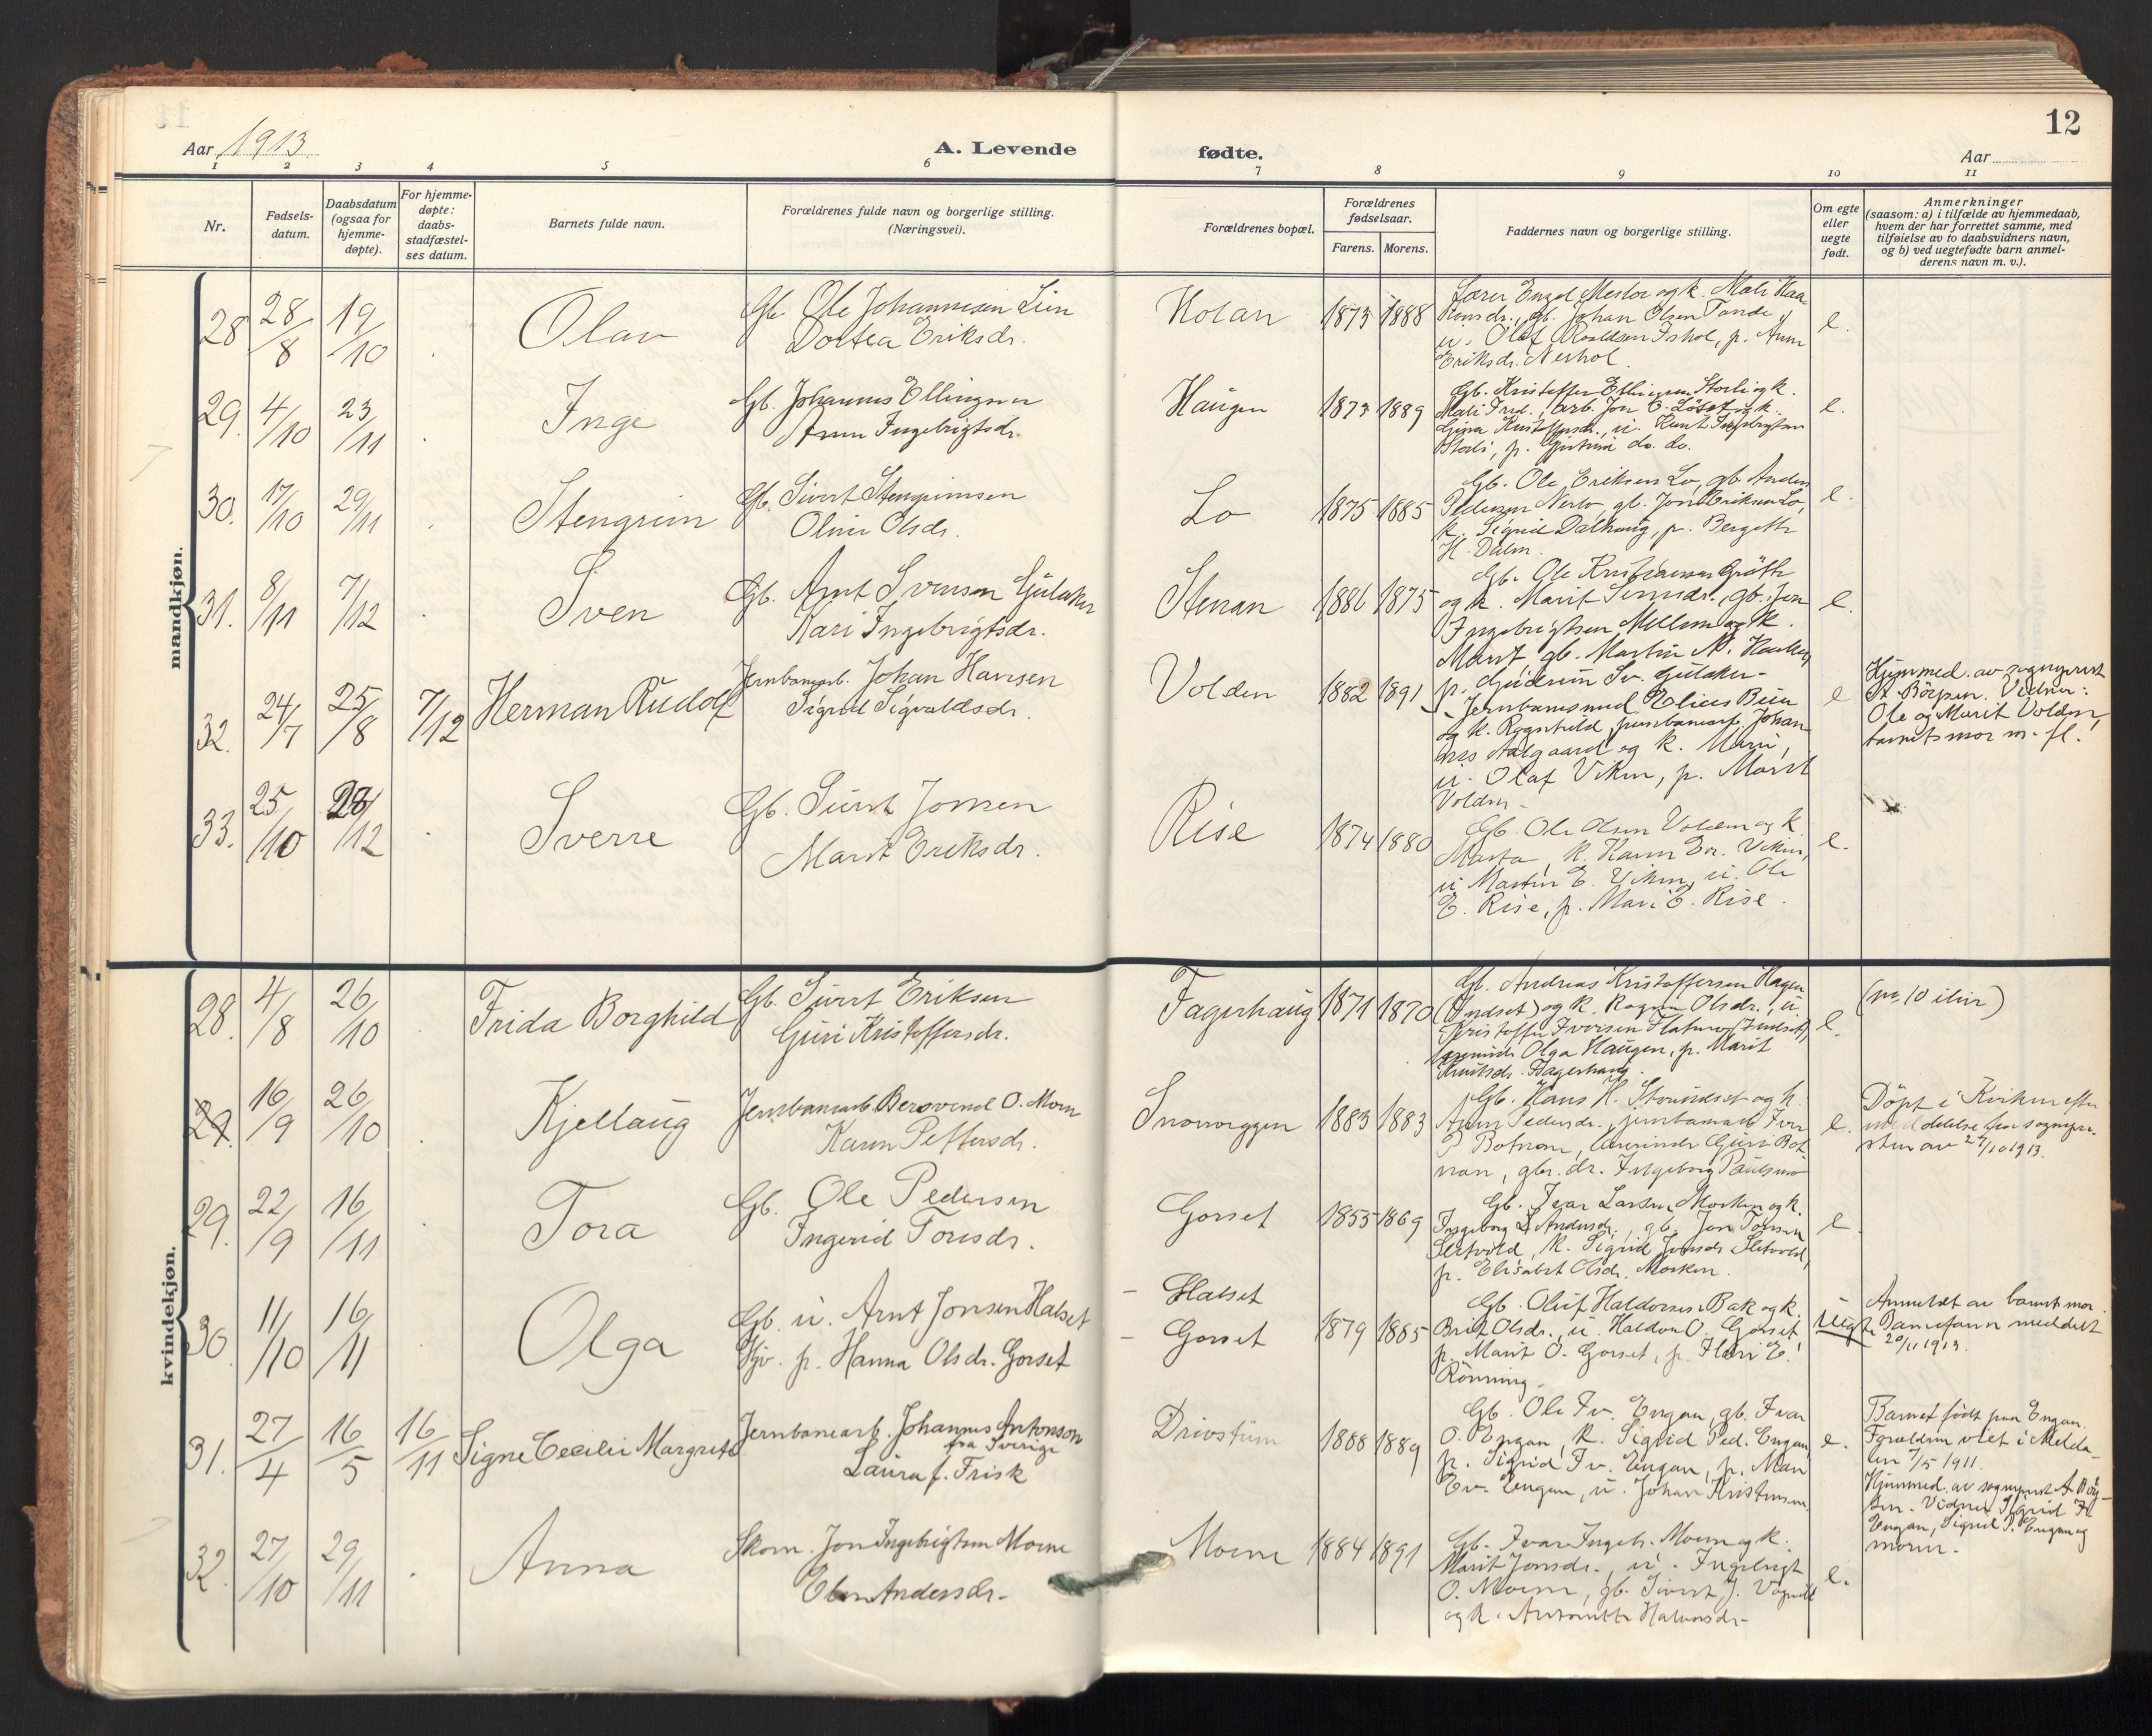 12
Aar 1913
A. Levende
fødte.
Aar
1 2 3 4 5 6 7 8 9 10 11
Nr.
Fødsels-
datum.
Daabsdatum
(ogsaa for
hjemme-
døpte).
For hjemme-
døpte:
daabs-
stadfæstel-
ses datum.
Barnets fulde navn.
Forældrenes fulde navn og borgerlige stilling.
(Næringsvei).
Forældrenes bopæl.
Forældrenes
fødselsaar.
Farens. Morens.
Faddernes navn og borgerlige stilling.
Om egte
eller
uegte
født.
Anmerkninger
(saasom: a) i tilfælde av hjemmedaab,
hvem der har forrettet samme, med
tilføielse av to daabsvidners navn,
og b) ved uegtefødte barn anmel-
derens navn m. v.).
mandkjøn.
28 28/8 19/10 Olav
Gb. Ole Johannesen Lien
Dortea Eriksdr.
1873 1888
Johan Olsen Tande,
Eriksdr. Nerhol.
e.
29. 4/10 23/11 Inge
Gb. Johannes Ellingsen
Ingebrigtsdr.
Haugen 1873 1889
Gb. Kristoffer Ellingsen Storli og k.
e.
30. 17/10 29/11 Stengrim
Gb. Sivert Stengrimsen
Olsdr.
Lo 1875 1885
Gb. Ole Eriksen Lo, gb. Anders
Pedersen Nerlo, gb. Jon Eriksen Lo,
k. Sigrid Dalhaug, p.
e.
31. 8/11 7/12 Sven
Gb. Arnt Svensen Gulaker
Kari Ingebrigtsdr.
Stenan 1886 1875
Gb. Ole Kristiansen
og k. Marit gb. Jon
Ingebrigtsen Mellem og k.
Marit, gb. Martin
p. Gudrun Sv. Gulaker
e.
32. 24/7 25/8 7/12 Herman Rudolf
Jernbanearb. Johan Hansen
Sigrid Sigvaldsdr.
Volden 1882 1891
og k. Ragnhild, jernbanearb. Johan-
nes Aalgaard og k.
u. Olaf Viken, p. Marit
Volden
e
Hjemmed. av sogneprest
Vidner:
Ole og Marit Volden,
barnets mor m. fl.
33. 25/10 28/12 Sverre
Gb. Sivert Jonsen
Marit Eriksdr.
Rise 1874 1880
Gb. Ole Olsen Volden og k
Marta, k. Karen Er. Viken,
u. Martin E. Viken, u. Ole
E. Rise, p. Mari E. Rise.
e.
kvindekjøn.
28. 4/8 26/10 Frida Borghild
Gb. Sivert Eriksen
Guri Kristoffersdr.
Fagerhaug 1871 1870
Gb. Andreas Kristoffersen Hagen
(Indset) og k. Ragna Olsdr., u.
Kristoffer Iversen
lærerinde Olga Haugen, p. Marit
Fagerhaug.
e.
29 16/9 26/10 Kjellaug
Jernbanearb. Bersvend O. Moen
Karen Pettersdr.
Snoveggen 1883 1883
Gb. Hans K. Strindset og k.
Pedersdr., jernbanearb. Iver
P. Botnan, lærerinde Guri Bot-
nan, gbr. dr. Ingeborg
e.
Døpt i Kirken efter
meddelelse fra sognepre-
sten av 27/10 1913.
29. 22/9 16/11 Tora
Gb. Ole Pedersen
Ingerid Toresdr.
Gorset 1855 1869
Gb. Ivar Larsen Morken og k.
Ingeborg Andersdr., gb. Jon Toresen
Sletvold, k. Sigrid Jonsdr. Sletvold,
p. Elisabet Olsdr. Morken.
e
30 11/10 16/11 Olga
Gb. u. Arnt Jonsen Halset
Tjv. p. Hanna Olsdr. Gorset
- Halset
- Gorset 1879 1885
Gb. Oluf Haldorsen Bak og k.
Brit Olsdr., u. Haldor O. Gorset,
p. Marit O. Gorset, p.
Rønning.
uegte
Anmeldt av barnets mor.
Barnefaren meddelt
20/11 1913.
31. 27/4 16/5 16/11 Signe Cecilie Margrete
Jernbanearb. Johannes Antonson
fra Sverige
Laura f. Frisk
Drivstuen 1888 1889
Gb. Ole Iv. Engan, gb. Ivar
O. Engan, k. Sigrid Ped. Engan,
p. Sigrid Iv. Engan, p. Mari
Ev. Engan, u. Johan Kristensen.
e.
Barnet født paa Engan.
Forældrene viet i Melda-
len 7/5 1911.
Hjemmed. av sogneprest
Vidner Sigrid Iv.
Engan, Sigrid P. Engan og
moren.
32. 27/10 29/11 Anna
Skom. Jon Ingebrigtsen Moene
Ellen Andersdr.
Moene 1884 1891
Gb. Ivar Ingebr. Moen og k.
Marit Jonsdr., u. Ingebrigt
O. Moene, gb. Sivert J.
og k. Antonette Halvorsdr.
e.